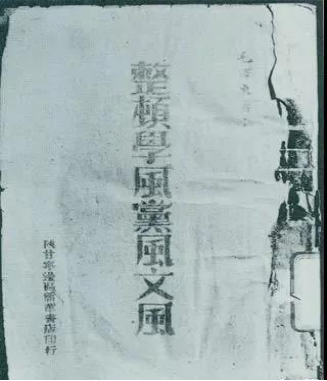 毛
整頓學風黨風文風
陝甘寧邊區新華書店印行